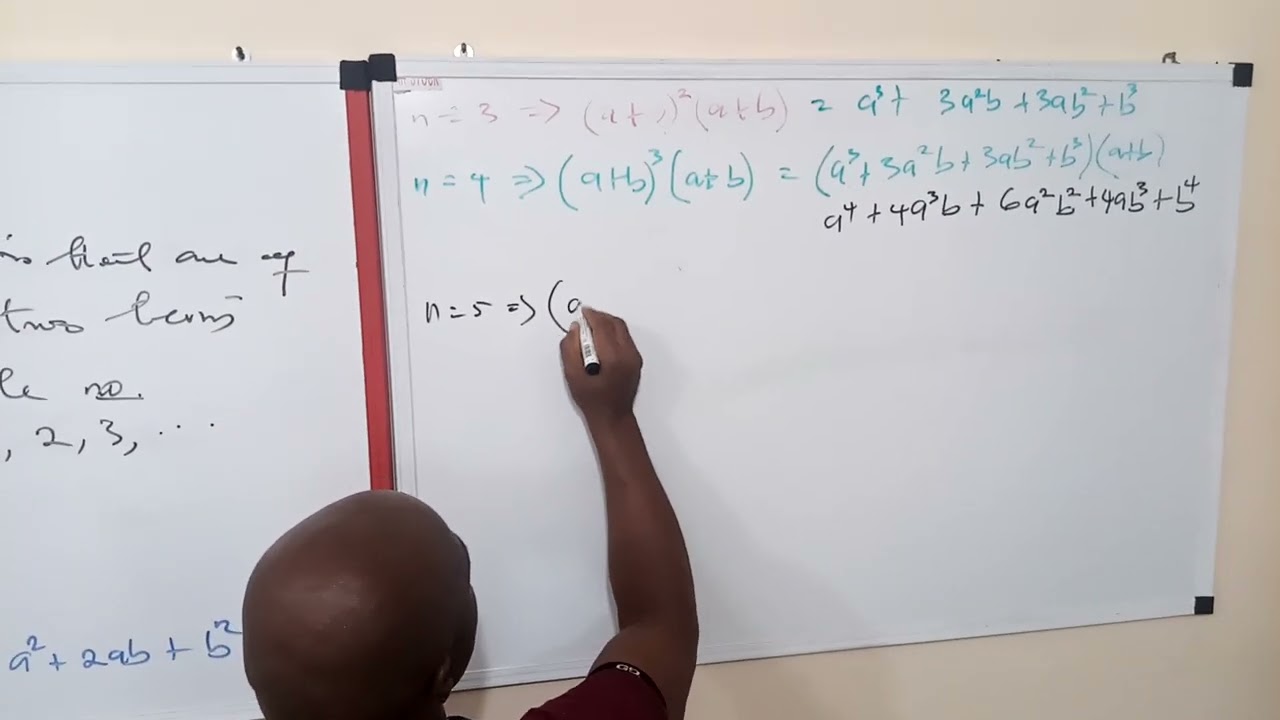 two terms
le no.
, 2, 3, ...
a² + 2ab + b²
n = 3 => (a+ )²(a+b) = a³ + 3a²b + 3ab² + b³
n = 4 => (a+b)³(a+b) = (a³ + 3a²b + 3ab² + b³)(a+b)
a⁴ + 4a³b + 6a²b² + 4ab³ + b⁴
n = 5 => (a